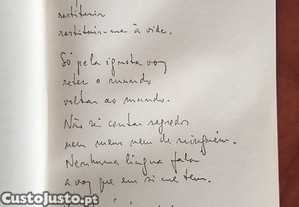 restituir
restituir-me à vida.
Só pela ignota voz
reter o mundo
voltar ao mundo.
Não sei contar segredos
nem meus nem de ninguém.
Nenhuma língua fala
a voz que em si me tem.
CustoJusto.pt